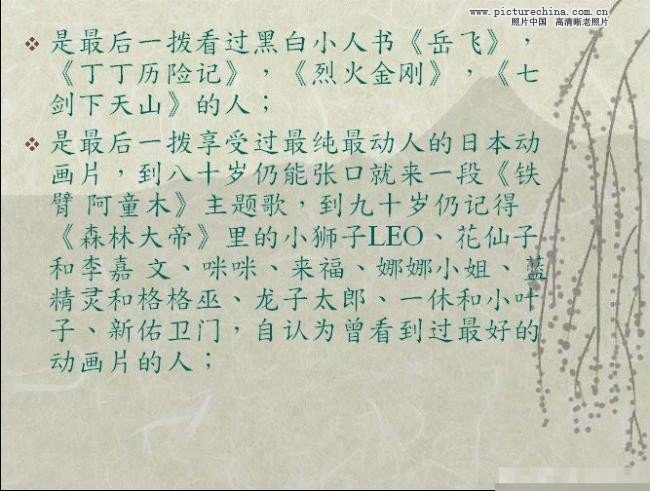 www.picturechina.com.cn
照片中国 高清晰老照片
是最后一拨看过黑白小人书《岳飞》，
《丁丁历险记》，《烈火金刚》，《七
剑下天山》的人；
是最后一拨享受过最纯最动人的日本动
画片，到八十岁仍能张口就来一段《铁
臂 阿童木》主题歌，到九十岁仍记得
《森林大帝》里的小狮子LEO、花仙子
和李嘉 文、咪咪、来福、娜娜小姐、蓝
精灵和格格巫、龙子太郎、一休和小叶
子、新佑卫门，自认为曾看到过最好的
动画片的人；